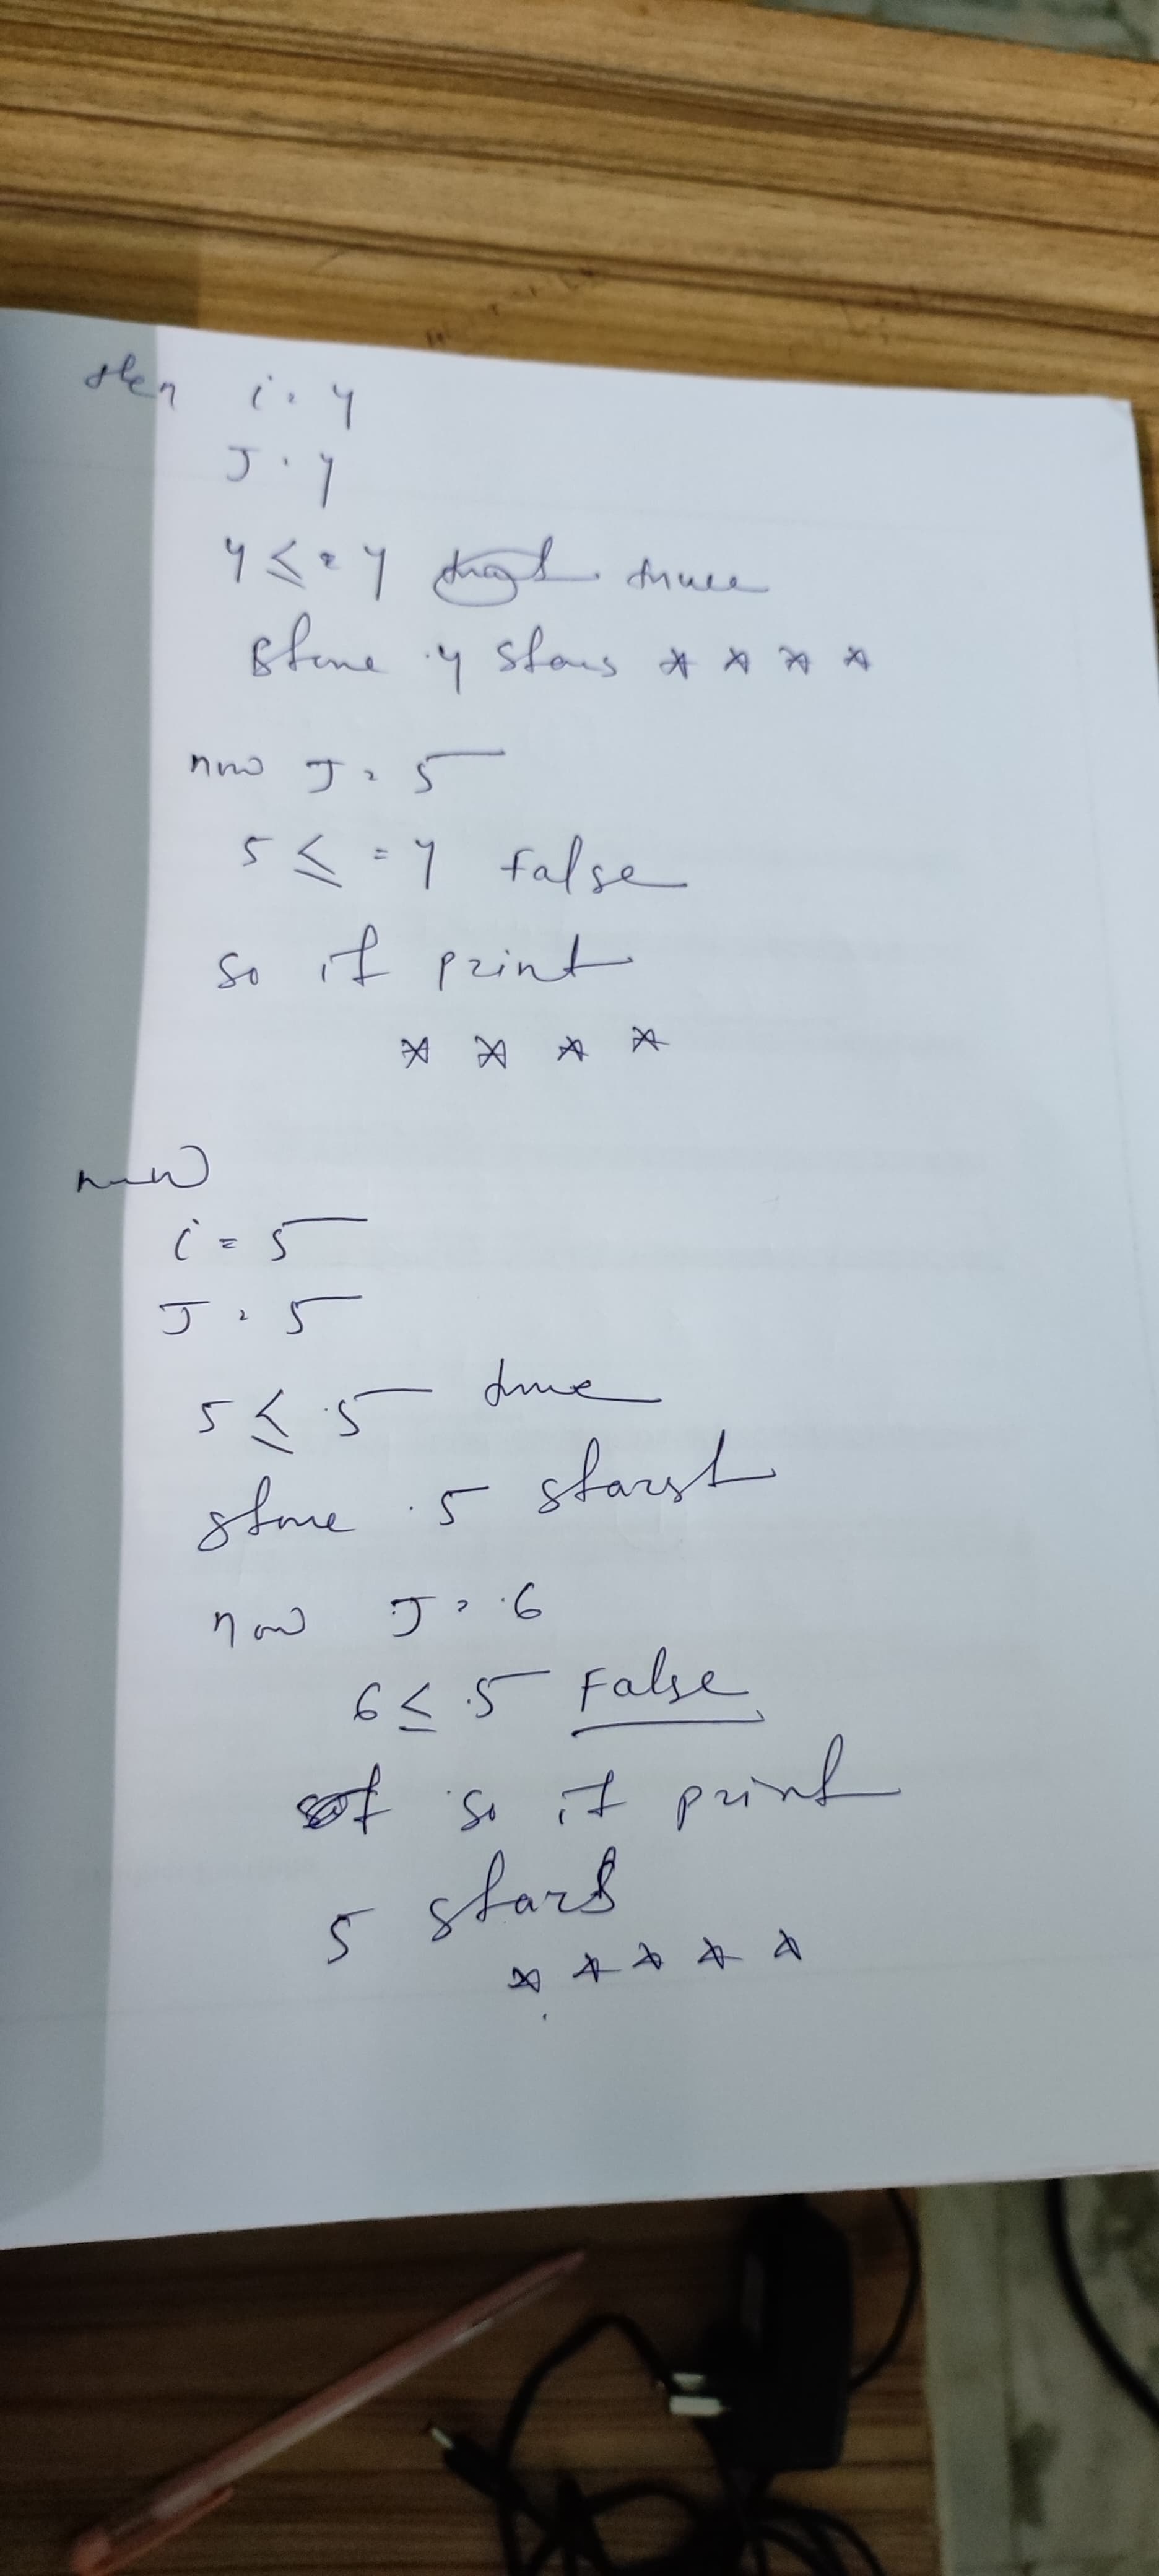 then i = 4
J = 4
4 <= 4 true
Store 4 stars * * * *
now J = 5
5 ≤ = 4 False
so it print
* * * *
now
i = 5
J = 5
5 ≤ 5 true
store 5 stars
now J = 6
6 ≤ 5 False
so it print
5 stars
* * * * *